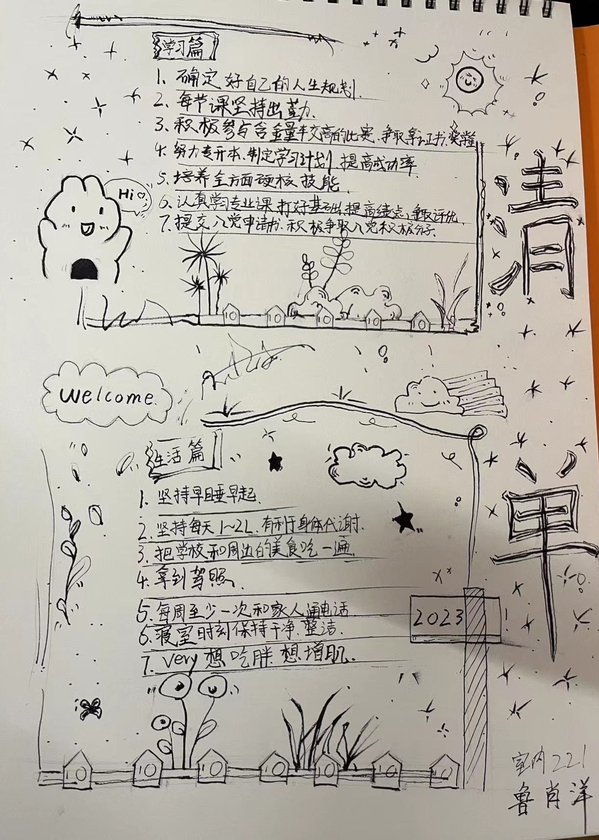 学习篇
1、确定好自己的人生规划.
2、每节课坚持出勤.
3、积极参与含金量较高的比赛.争取拿证书.奖学
4、努力专升本.制定学习计划 提高成功率.
5、培养全方面硬核技能.
6、认真学习专业课.打好基础.提高绩点.争取评优.
7、提交入党申请书.积极争取入党积极分子.
Hi
清
单
welcome.
生活篇
1、坚持早睡早起.
2、坚持每天1~2L.有利于身体代谢.
3、把学校和周边的美食吃一遍.
4、拿到驾照.
5、每周至少一次和家人通电话.
6、寝室时刻保持干净.整洁.
7、Very 想吃胖 想增肌.
2023
室内221
鲁肖洋